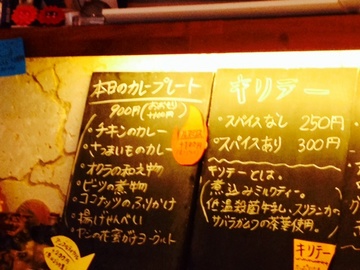 本日のカレープレート
900円(おおもり
+100円)
・チキンのカレー
・さつまいものカレー
・オクラの和え物
・ビーツの煮物
・ココナッツのふりかけ
・揚げせんべい
・ヤシの花蜜がけヨーグルト
キリテー
・スパイスなし 250円
・スパイスあり 300円
キリテーとは、
煮込みミルクティー。
低温殺菌牛乳、スリランカの
サバラガムワの茶葉使用。
キリテー